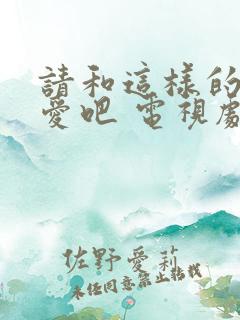 請和這樣的
愛吧 電視劇
佐野愛莉
未經同意禁止轉載